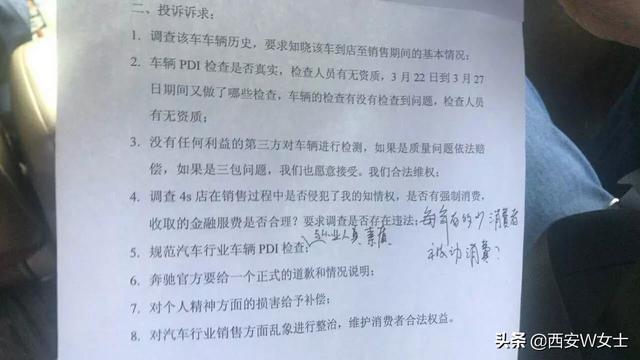 二、投诉诉求:
1. 调查该车车辆历史，要求知晓该车到店至销售期间的基本情况;
2. 车辆 PDI 检查是否真实，检查人员有无资质，3 月 22 日到 3 月 27
日期间又做了哪些检查，车辆的检查有没有检查到问题，检查人员
有无资质;
3. 没有任何利益的第三方对车辆进行检测，如果是质量问题依法赔
偿，如果是三包问题，我们也愿意接受。我们合法维权;
4. 调查 4s 店在销售过程中是否侵犯了我的知情权，是否有强制消费，
收取的金融服费是否合理？要求调查是否存在违法;
每年有多少消费者
被动消费？
5. 规范汽车行业车辆 PDI 检查;
从业人员素质
6. 奔驰官方要给一个正式的道歉和情况说明;
7. 对个人精神方面的损害给予补偿;
8. 对汽车行业销售方面乱象进行整治，维护消费者合法权益。
头条 @西安W女士